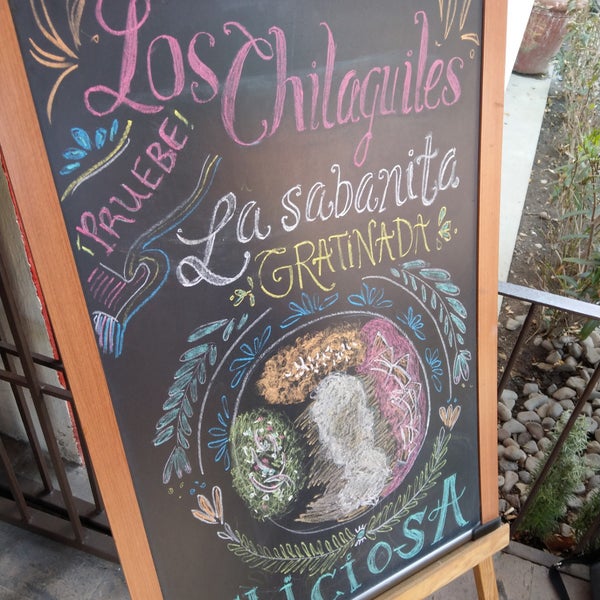 Los Chilaquiles
¡PRUEBE!
La sabanita
GRATINADA
ELICIOSA